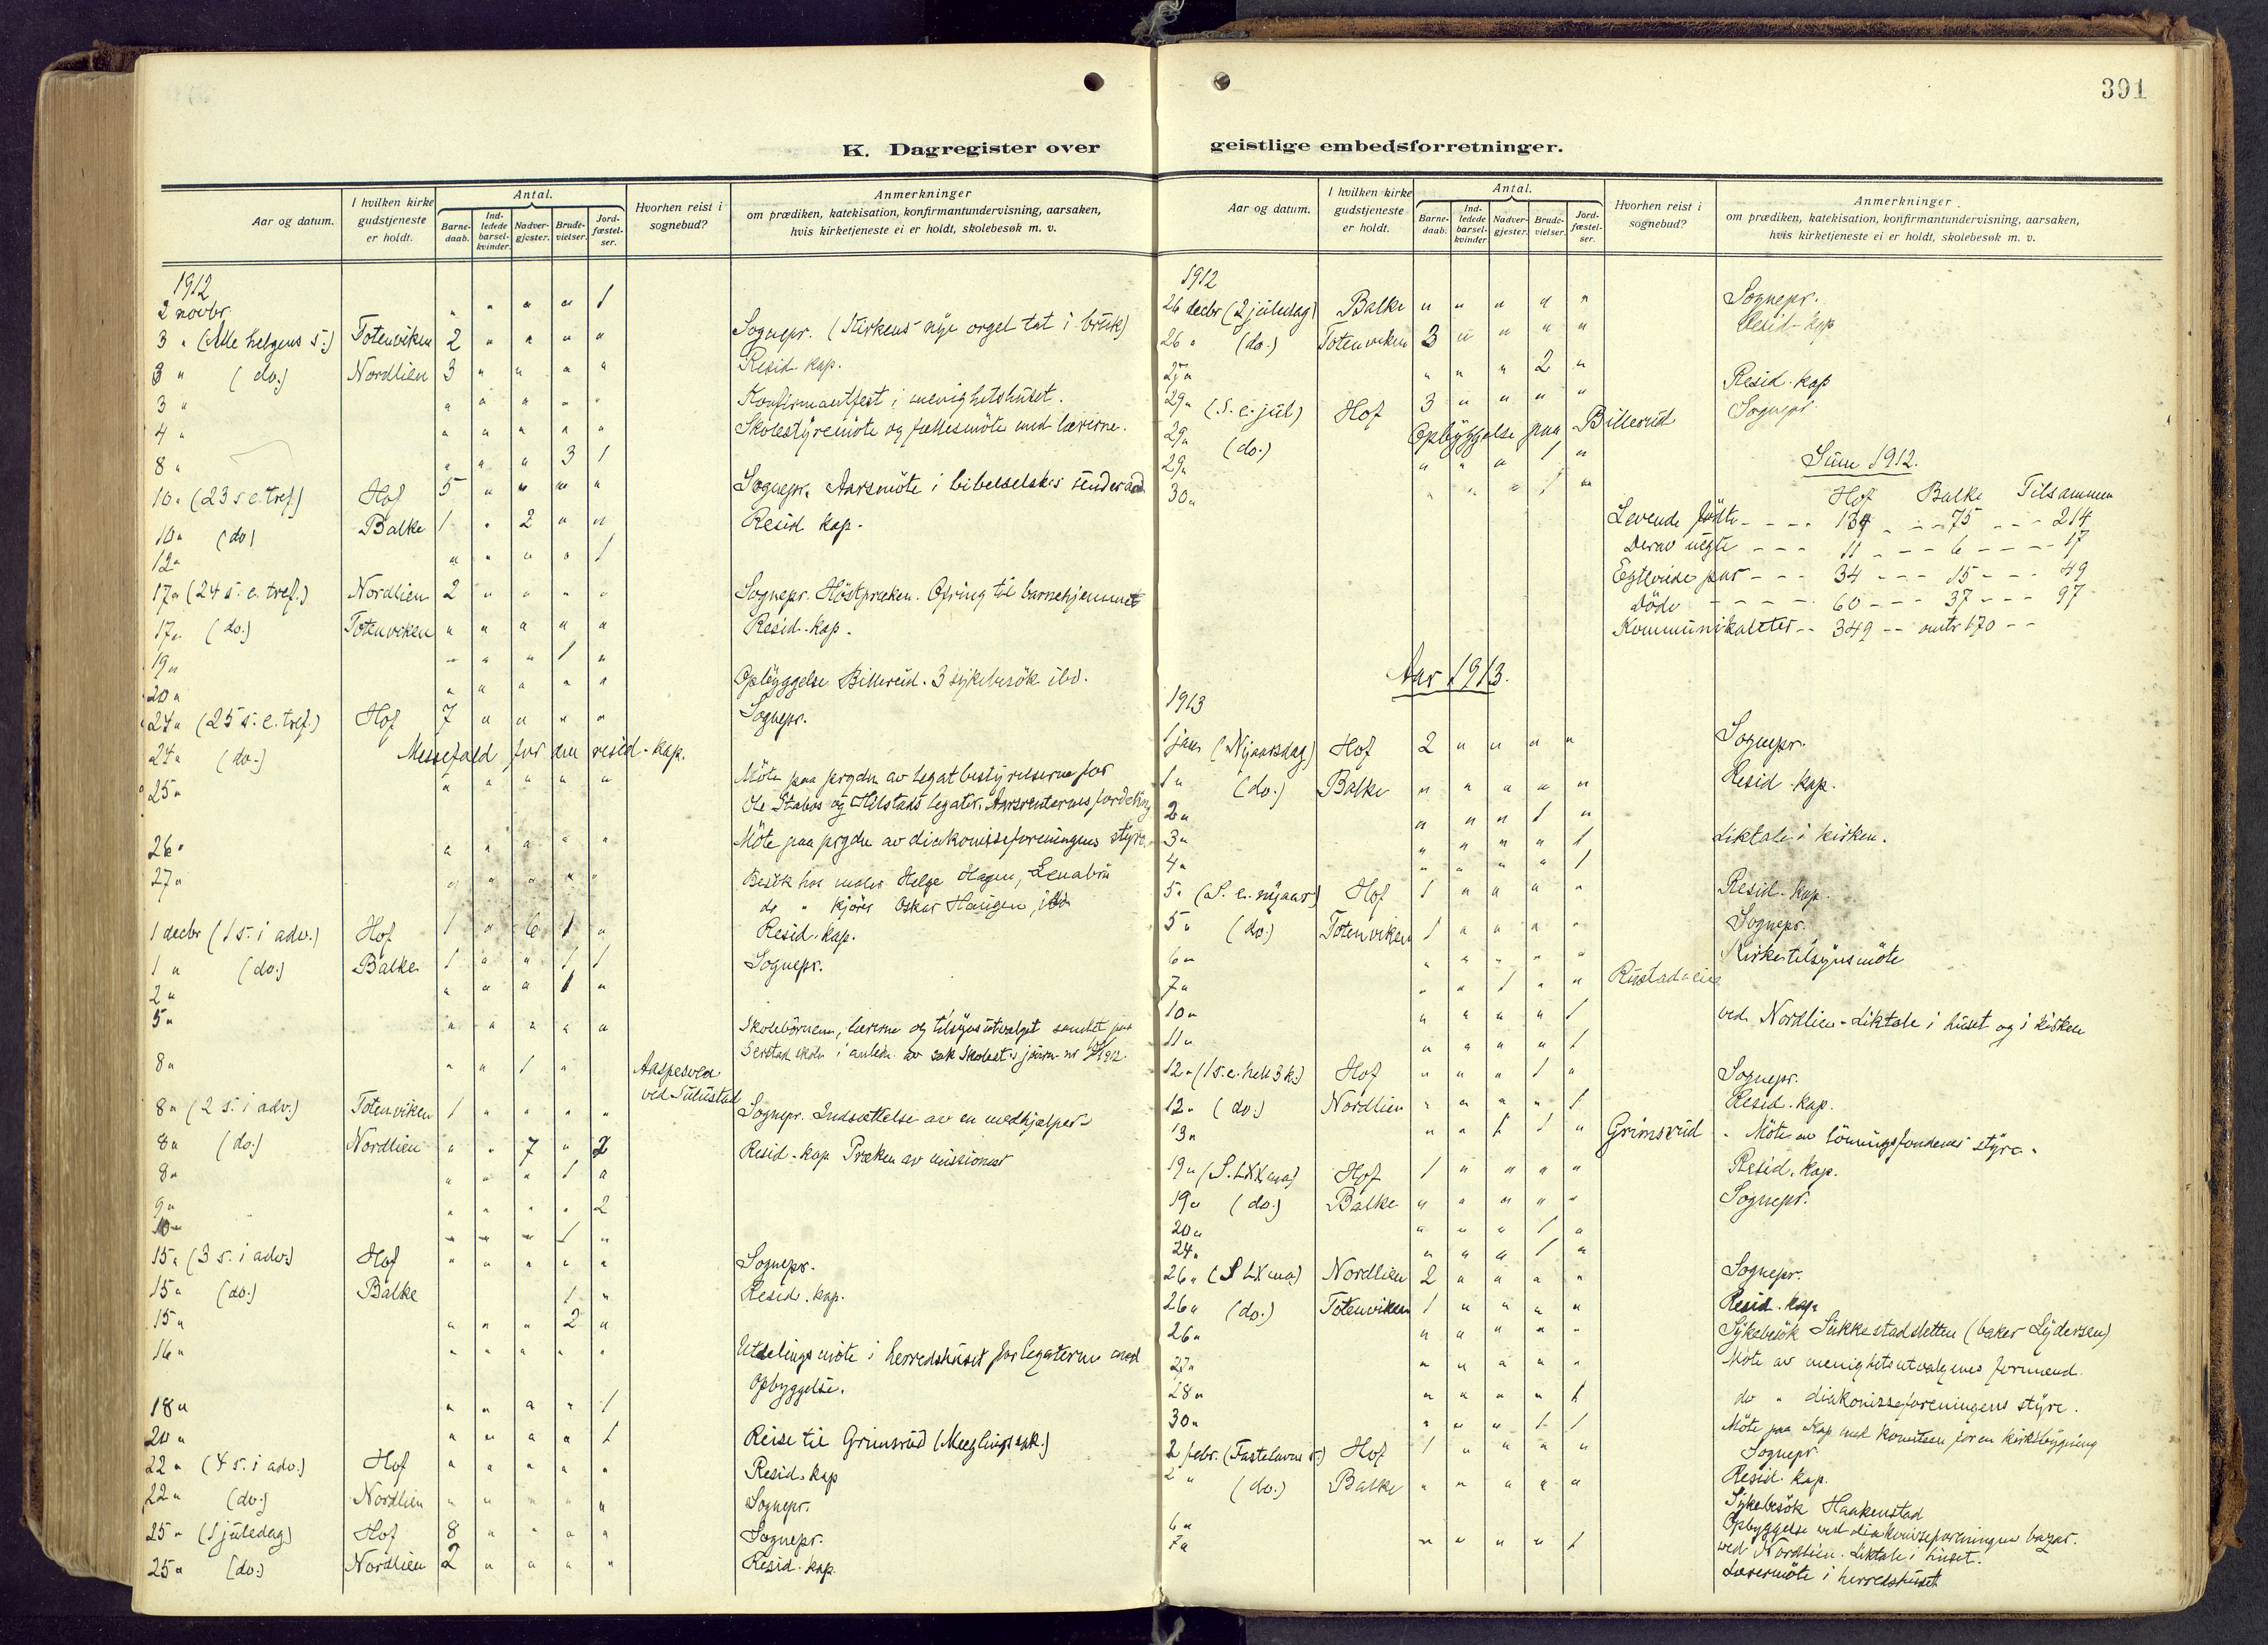 391
K. Dagregister over
geistlige embedsforretninger.
Aar og datum.
I hvilken kirke gudstjeneste er holdt.
Antal.
Barne-daab.
Ind-ledede barsel-kvinder.
Nadver-gjester.
Brude-vielser.
Jord-fæstel-ser.
Hvorhen reist i sognebud?
Anmerkninger
om prædiken, katekisation, konfirmantundervisning, aarsaken,
hvis kirketjeneste ei er holdt, skolebesøk m. v.
1912
2 novbr. " " " " 1
3 " (Alle helgens s.) Totenviken 2 " " " " Sognepr. (Kirkens nye orgel tat i bruk)
3 " (do.) Nordlien 3 " " " " Resid. kap.
3 " " " " " " Konfirmantfest i menighetshuset.
4 " " " " " " Skolestyremöte og fællesmöte med lærerne.
8 " " " " 3 1
10 " (23 s. e. tref.) Hof 5 " " " " Sognepr. Aarsmöte i bibelselskap
10 " (do) Balke 1 " 2 " " Resid kap.
12 " " " " " 1
17 " (24 s. e. tref.) Nordlien 2 " " " " Sognepr. Höstpræken. Ofring til barnehjemmet
17 " (do.) Totenviken " " " " " Resid. kap.
19 " " " " 1 "
20 " " " " " " Opbyggelse Billerud. 3 sykebesök ibd.
24 " (25 s. e. tref.) Hof 7 " " " " Sognepr.
24 " (do.) Messefald for den resid. kap.
25 " " " " " " Möte paa prgdn av legatbestyrelserne for
Ole Stabos og Hilstads legater. Aarsrenternes fordeling
26 " " " " " " Möte paa prgdn av diakonisseforeningens styre.
27 " " " " " " Besök hos maler Helge Hagen, Lenabru
do " kjörer Oskar Haugen, ibd.
1 decbr (1 s. i adv.) Hof 1 " 6 1 " Resid. kap.
1 " (do.) Balke 1 " " 1 1 Sognepr.
2 " " " " 1 "
5 " " " " " " Skolebörnene, lærerne og tilsynsutvalget samlet paa
8 " " " 1 " Aaspesveen
ved Sulustad
8 " (2 s. i adv.) Totenviken 1 " " " " Sognepr. Indsættelse av en medhjælper
8 " (do.) Nordlien " " 7 " 2 Resid. kap. Præken av missionær
8 " " " " 1 "
9 " " " " " 2
10 " " " " 1 "
15 " (3 s. i adv.) Hof " " " " " Sognepr.
15 " (do.) Balke 1 " Resid. kap.
15 " " " " 2 "
16 " " " " " " Utdelingsmöte i herredshuset for legaterne med
Opbyggelse.
18 " " " " " 1
20 " " " " " 1 Reise til Grimsrud (Mæglingssak.)
22 " (4 s. i adv.) Hof " " " " " Resid. kap
22 " (do.) Nordlien " " " " " Sognepr.
25 " (1 juledag) Hof 8 " " " " Sognepr.
25 " (do.) Nordlien 2 " " " " Resid. kap.
Aar og datum.
I hvilken kirke gudstjeneste er holdt.
Antal.
Barne-daab.
Ind-ledede barsel-kvinder
Nadver-gjester.
Brude-vielser.
Jord-fæstel-ser.
Hvorhen reist i sognebud?
Anmerkninger.
om prædiken, katekisation, konfirmantundervisning, aarsaken,
hvis kirketjeneste ei er holdt, skolebesøk m. v.
1912
26 decbr (2 juledag) Balke " " " " " Sognepr.
26 " (do.) Totenviken 3 " " " " Resid. kap
" " " 2 "
29 " (S. e. jul) Hof 3 " " " " Resid. kap
29 " (do.) Opbyggelse paa Billerud Sognepr.
29 " " " " 1 "
30 " " " " 1 "
Sum 1912.
Hof Balke Tilsammen
Levende fødte - - - 139 - - 75 - - - 214
Derav uegte - - - 11 - - - 6 - - - 17
Egteviede par - - - 34 - - - 15 - - - 49
Döde - - - - 60 - - - 37 - - - 97
Kommunikanter - - 349 - - omtr 170 - -
Aar 1913.
1913
1 jan (Nyaarsdag) Hof 2 " " " " Sognepr.
1 " (do.) Balke " " " " " Resid. kap.
2 " " " " 1 "
3 " " " " " 1 Liktale i kirken.
4 " " " " " 1
5 " (S. e. nyaar) Hof 1 " " " " Resid. kap.
5 " (do.) Totenviken 1 " " " " Sognepr.
6 " " " " " " Kirketilsynsmöte
7 " " " 1 " " Rustadeie
10 " " " " " 1 ved Nordlien. Liktale i huset og i kirken
11 " " " " " 1
12 " (1 s. e. hell 3 k.) Hof " " " 1 " Sognepr.
12 " (do.) Nordlien " " " " 1 Resid. kap.
13 " " " 1 1 " Grimsrud " Möte av lönningsfondenes styre.
19 " (S. LXX ma) Hof 1 " " " " Resid. kap.
19 " (do.) Balke " " " " " Sognepr.
20 " " " " 1 "
24 " " " " 1 "
26 " (S LX ma) Nordlien 2 " " " " Sognepr.
26 " (do.) Totenviken 1 " " " " Resid. kap.
26 " " " " " " Sykebesök Sukkestadsletten (baker Lydersen)
27 " " " " " " Möte av menighetsutvalgenes formænd.
28 " " " " " 1 do " diakonisseforeningens styre.
30 " " " " 1 1 Möte paa Kap med komiteen for en kirkebygning
2 febr. (Fastelavns s.) Hof 1 " " " " Sognepr
2 " (do.) Balke " " " " " Resid. kap.
6 " Sykebesök Haakenstad
Opbyggelse ved diakonisseforeningens bazar.
7 " " " " " 1 ved Nordlien. Liktale i huset.
Lærermöte i herredshuset